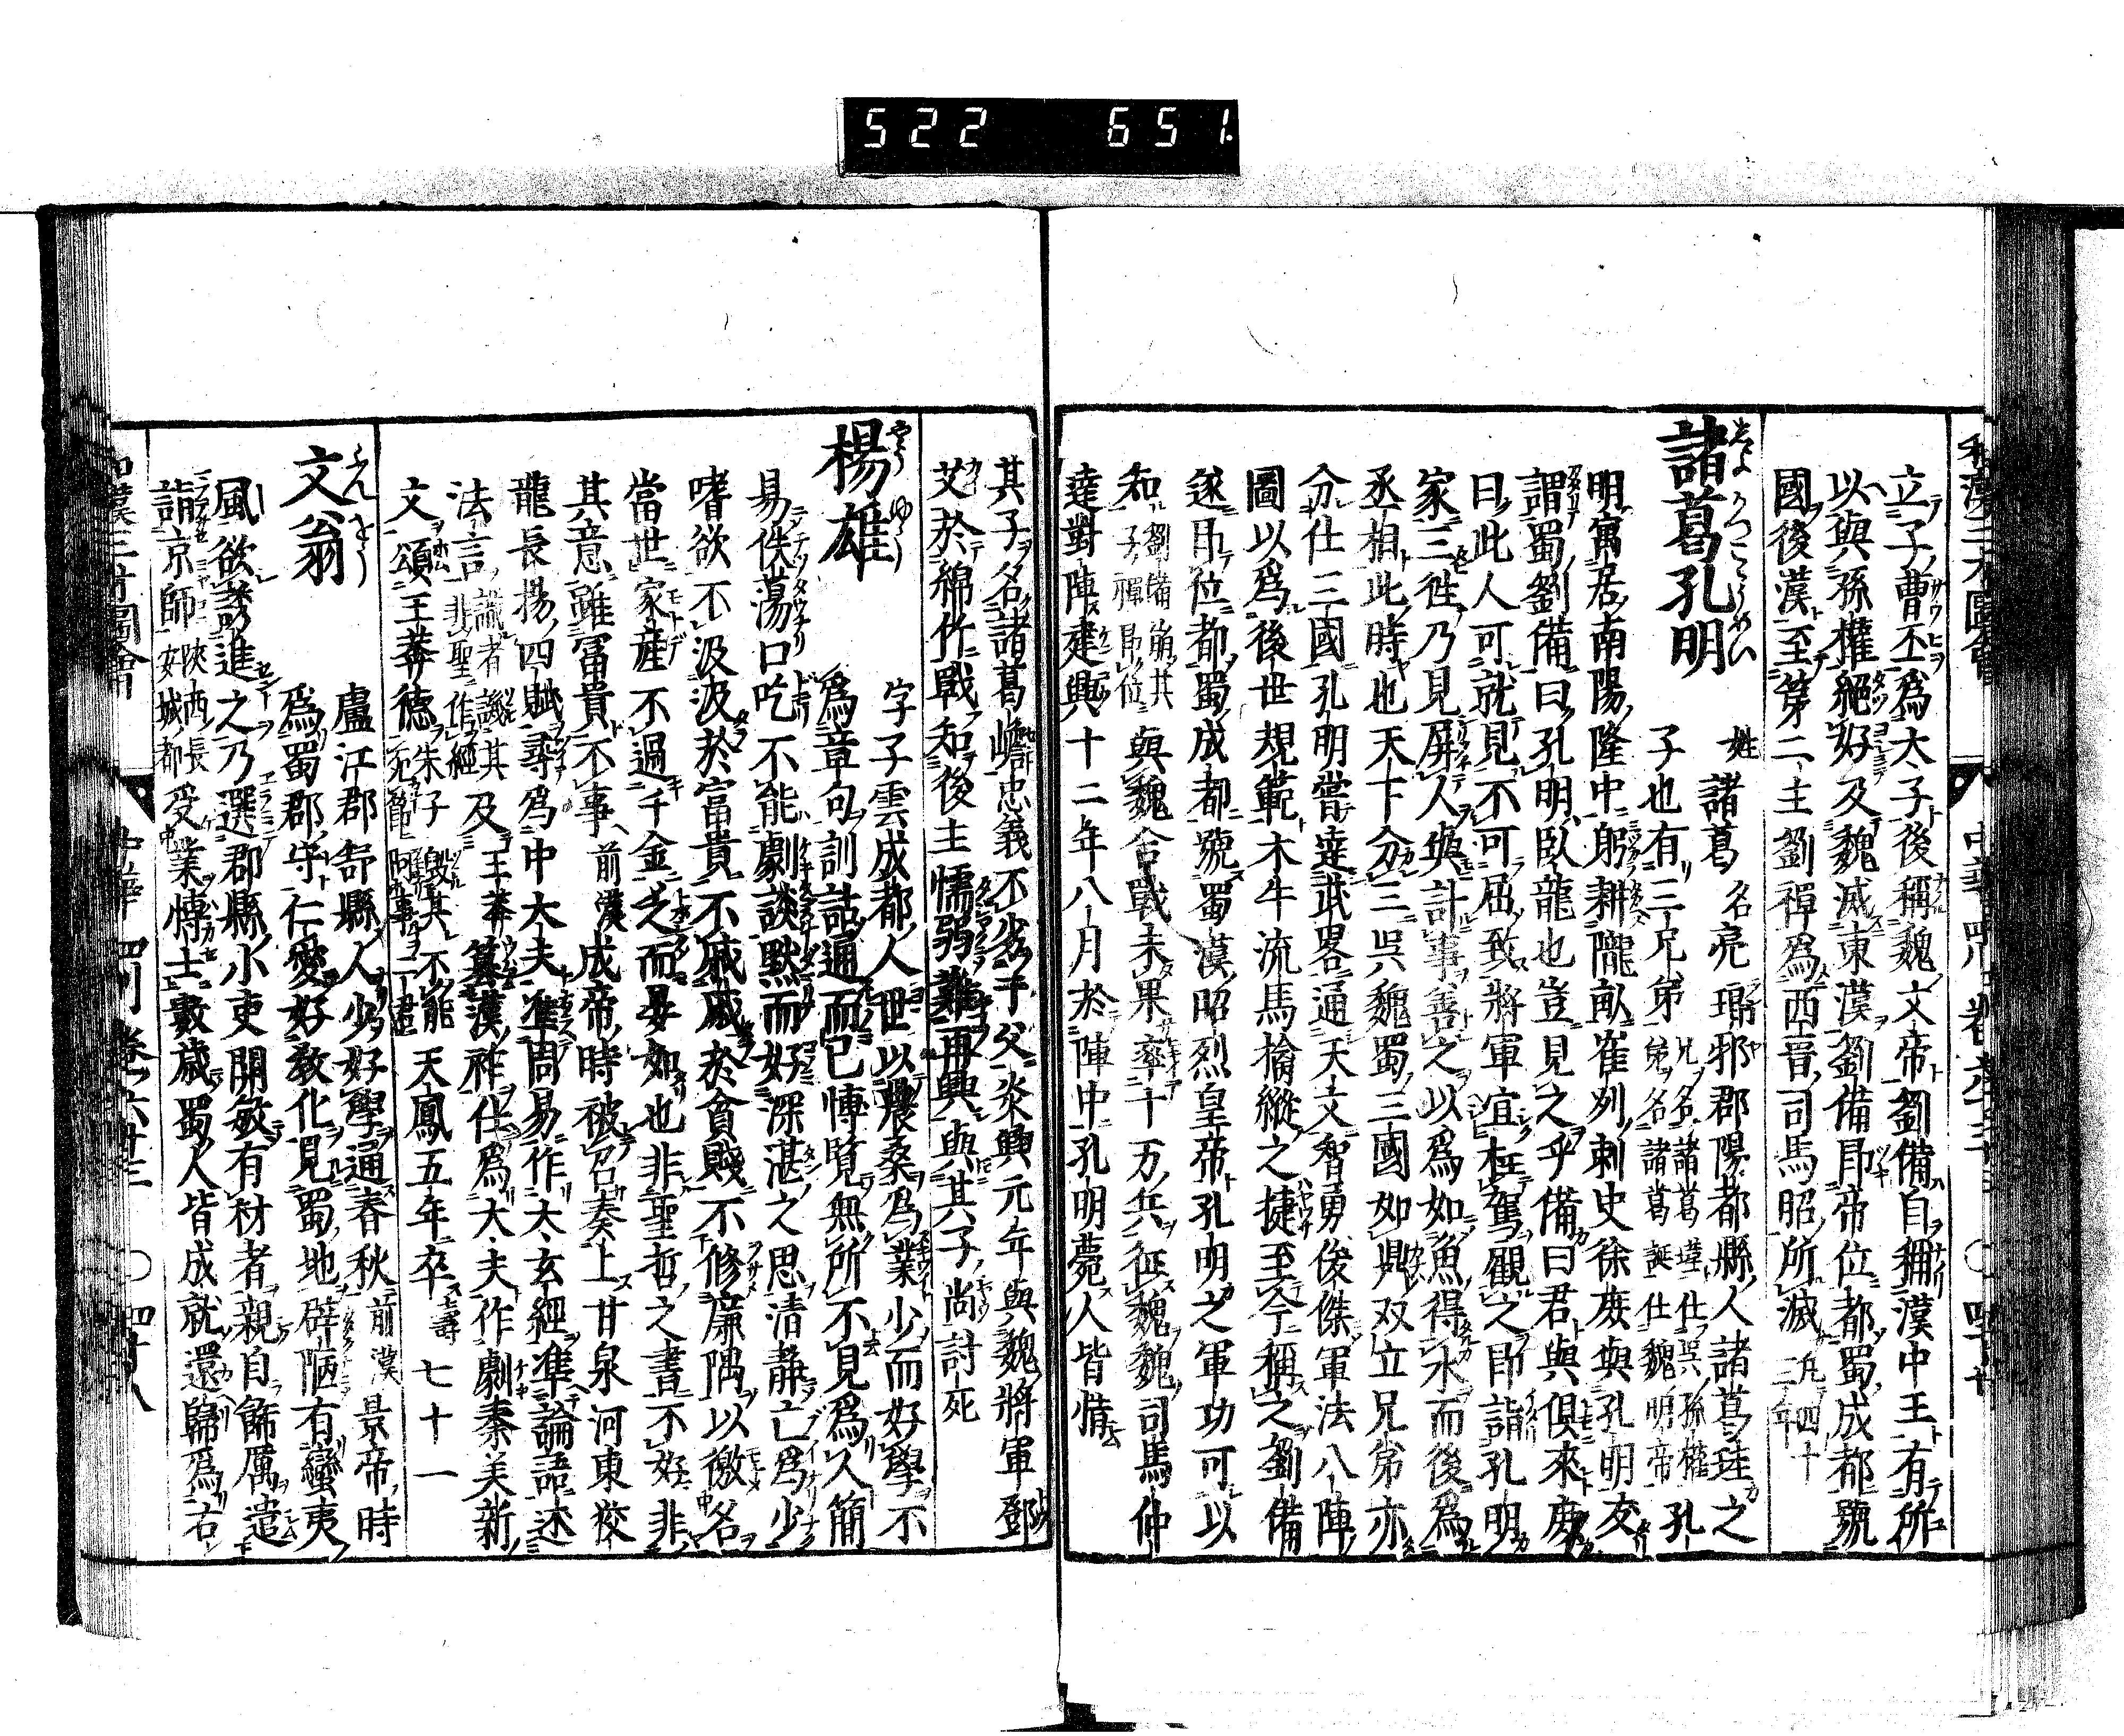 522 651
立子曹丕為太子後稱魏文帝劉備自稱漢中王有所
以與孫權絕好及魏滅東漢劉備即帝位都蜀成都號
國後漢至第二主劉禪為西晉司馬昭所滅 凡四十三年
諸葛孔明 姓諸葛名亮瑯邪郡陽都縣人諸葛珪之
子也有三兄弟 兄名諸葛瑾仕吳孫權 弟名諸葛誕仕魏明帝 孔
明寓居南陽隆中躬耕隴畝崔列刺史徐庶與孔明友
謂蜀劉備曰孔明臥龍也豈見之乎備曰君與俱來庶
曰此人可就見不可屈致將軍宜枉駕觀之即詣孔明
家三徃乃見屏人與計事善之以為如魚得水而後為
丞相此時也天下分三吳魏蜀三國如鼎双立兄弟亦
分仕三國孔明嘗達武畧通天文智勇俊傑軍法八陣
圖以為後世規範木牛流馬擒縱之捷至今稱之劉備
遂即位都蜀成都號蜀漢昭烈皇帝孔明之軍功可以
知 劉備崩其子禪即位 與魏合戰未果率十万兵征魏魏司馬仲
達對陣建興十二年八月於陣中孔明薨人皆惜
其子名諸葛瞻忠義不劣于父炎興元年與魏將軍鄧
艾於綿竹戰知後主懦弱難再興與其子尚討死
楊雄 字子雲成都人世以農桑為業少而好學不
為章句訓詁通而已博覽無所不見為人簡
易佚蕩口吃不能劇談默而好深湛之思清静亡為少
嗜欲不汲汲於富貴不戚戚於貧賤不修廉隅以徼名
當世家產不過千金乏而晏如也非聖哲之書不好非
其意雖冨貴不事前漢成帝時被召奏上甘泉河東狡
龍長揚四賦尋為中大夫準周易作太玄經準論語述
法言 識者譏其非聖作經 及王莽篡漢祚仕為大夫作劇秦美新
文頌王莽德 朱子毀其不能 天鳳五年卒 壽 七十一
文翁 盧江郡舒縣人少好學通春秋前漢景帝時
為蜀郡守仁愛好教化見蜀地辟陋有蠻夷
風欲誘進之乃選郡縣小吏開敏有材者親自飭厲遣
詣京師 陝西長安城都 受業博士數歲蜀人皆成就還歸為右